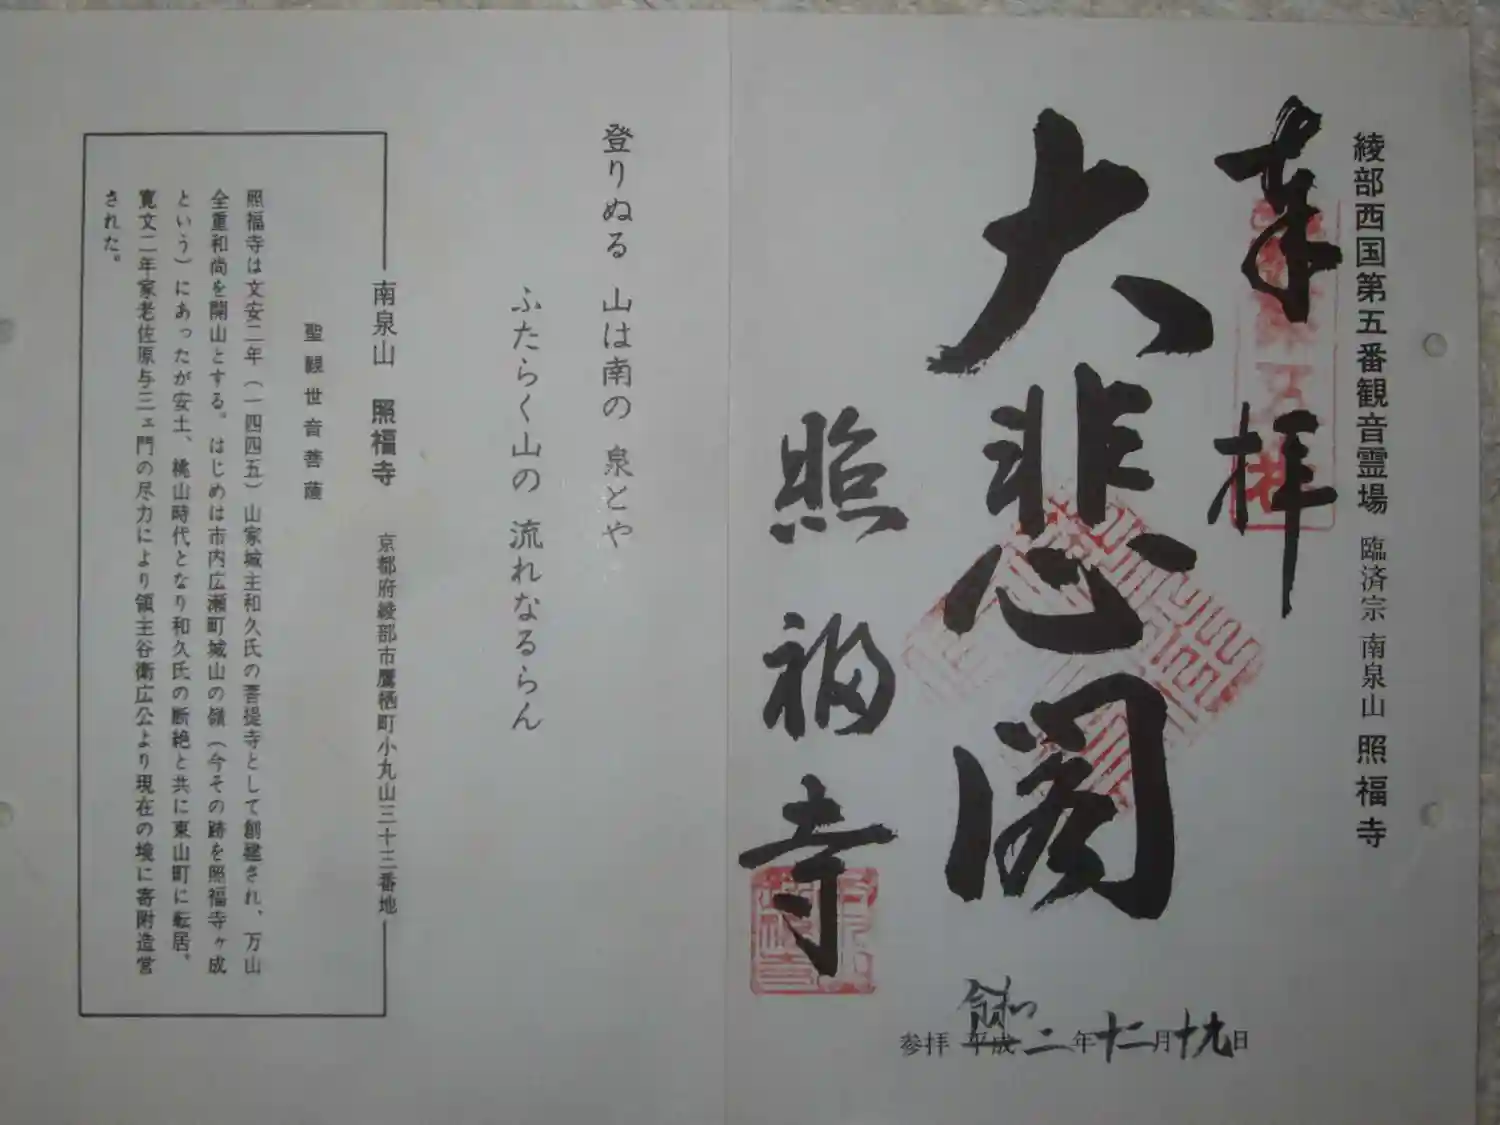 綾部西国第五番観音霊場 臨済宗 南泉山 照福寺
奉拝
大悲閣
照福寺
参拝 平成 令和 二年十二月十九日
登りぬる 山は南の 泉とや
ふたらく山の 流れなるらん
南泉山 照福寺 京都府綾部市鷹栖町小丸山三十三番地
聖観世音菩薩
照福寺は文安二年（一四四五）山家城主和久氏の菩提寺として創建され、万山
全重和尚を開山とする。はじめは市内広瀬町城山の嶺（今その跡を照福寺ヶ成
という）にあったが安土、桃山時代となり和久氏の断絶と共に東山町に転居、
寛文二年家老佐原与三ェ門の尽力により領主谷衛広公より現在の境に寄附造営
された。